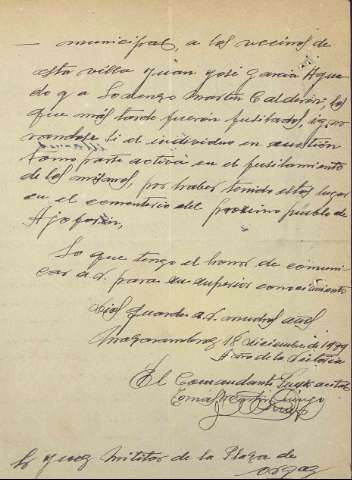 municipal, a los vecinos de
esta villa Juan José García Agua-
do y a Lorenzo Martín Calderón, los
que más tarde fueron fusilados, igno-
randose si el individuo en cuestión
tomo parte activa en el fusilamiento
de los mismos, por haber tenido estos lugar
en el cementerio del proximo pueblo de
Ajofrin,
Lo que tengo el honor de comuni-
car a V. para su superior conocimiento
Dios guarde a V. muchos años
18 diciembre de 1939
Año de la Victoria
El Comandante
Tomas
Sr Juez Militar de la Plaza de
Orgaz